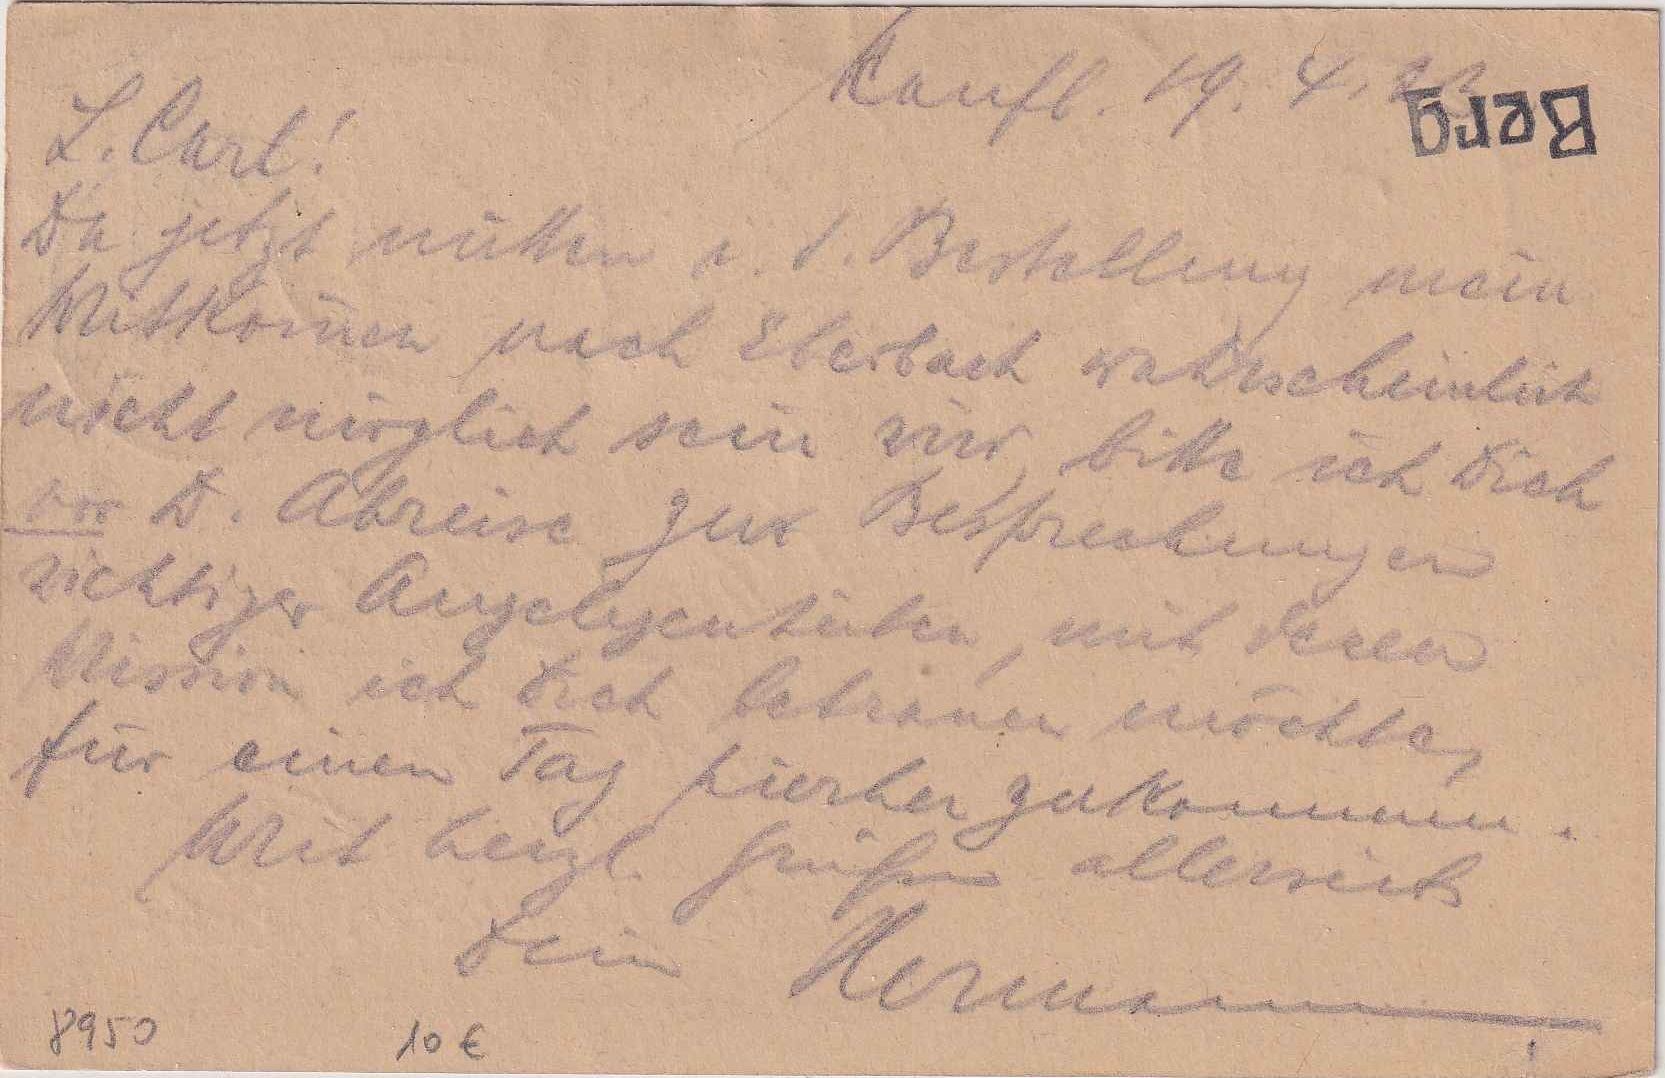 Kaufb. 19. 4. 22
Berg
L. Carl!
Da jetzt mitten i. d. Bestellung mein
Mitkom̅en nach Eberbach wahrscheinlich
nicht möglich sein wird, bitte ich Dich
vor D. Abreise zur Besprechungen
wichtiger Angelegenheiten, mit deren
Mission ich Dich betrauen möchte,
für einen Tag hierher zu kommen.
Mit herzl. Grüßen allerseits
Dein Hermann
8950 10 €